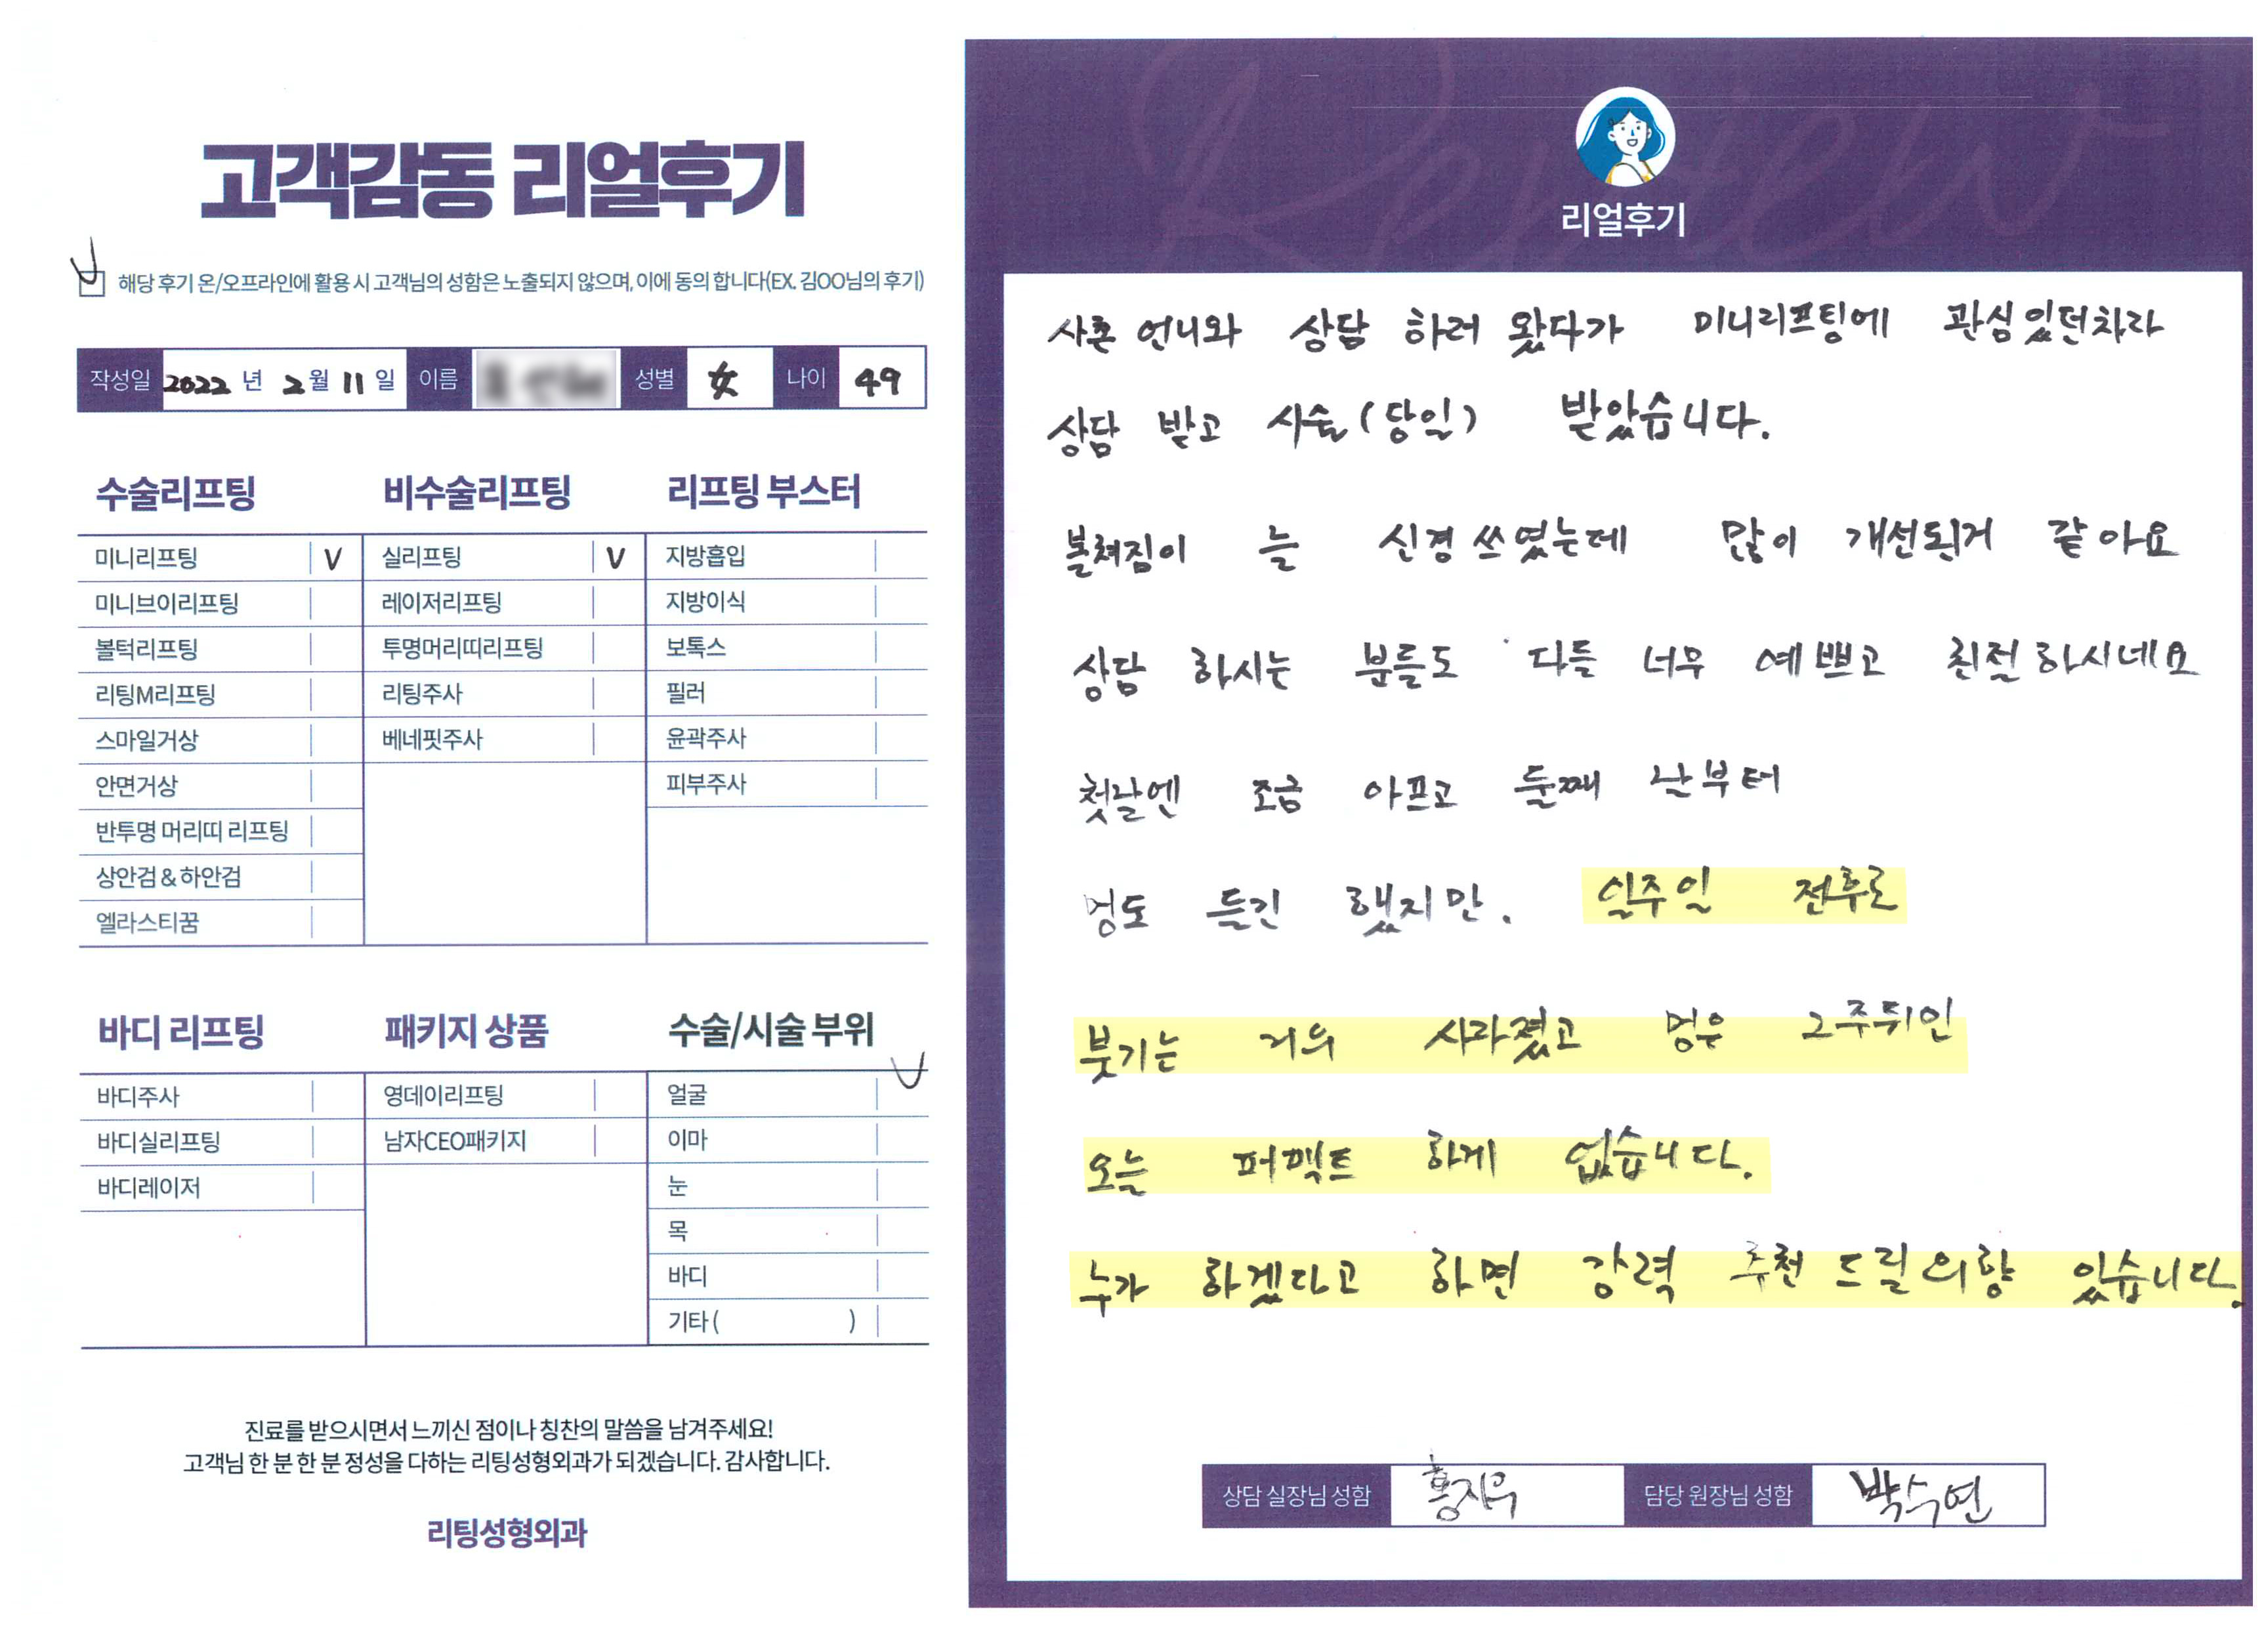 고객감동 리얼후기
해당 후기 온/오프라인에 활용 시 고객님의 성함은 노출되지 않으며, 이에 동의 합니다(EX. 김OO님의 후기)
작성일 2022 년 2 월 11 일 이름 성별 女 나이 49
수술리프팅 비수술리프팅 리프팅 부스터
미니리프팅 V 실리프팅 V 지방흡입
미니브이리프팅 레이저리프팅 지방이식
볼턱리프팅 투명머리띠리프팅 보톡스
리팅M리프팅 리팅주사 필러
스마일거상 베네핏주사 윤곽주사
안면거상 피부주사
반투명 머리띠 리프팅
상안검 & 하안검
엘라스티꿈
바디 리프팅 패키지 상품 수술/시술 부위
바디주사 영데이리프팅 얼굴 V
바디실리프팅 남자CEO패키지 이마
바디레이저 눈
목
바디
기타 ( )
진료를 받으시면서 느끼신 점이나 칭찬의 말씀을 남겨주세요!
고객님 한 분 한 분 정성을 다하는 리팅성형외과가 되겠습니다. 감사합니다.
리팅성형외과
Review
리얼후기
사촌 언니와 상담 하러 왔다가 미니리프팅에 관심있던차라
상담 받고 시술(당일) 받았습니다.
볼쳐짐이 늘 신경 쓰였는데 많이 개선된거 같아요
상담 하시는 분들도 다들 너무 예쁘고 친절하시네요
첫날엔 조금 아프고 둘째 날부터
멍도 들긴 했지만. 일주일 전후로
붓기는 거의 사라졌고 멍은 2주뒤인
오늘 퍼펙트 하게 없습니다.
누가 하겠다고 하면 강력 추천 드릴 의향 있습니다.
상담 실장님 성함 홍지우 담당 원장님 성함 박수연